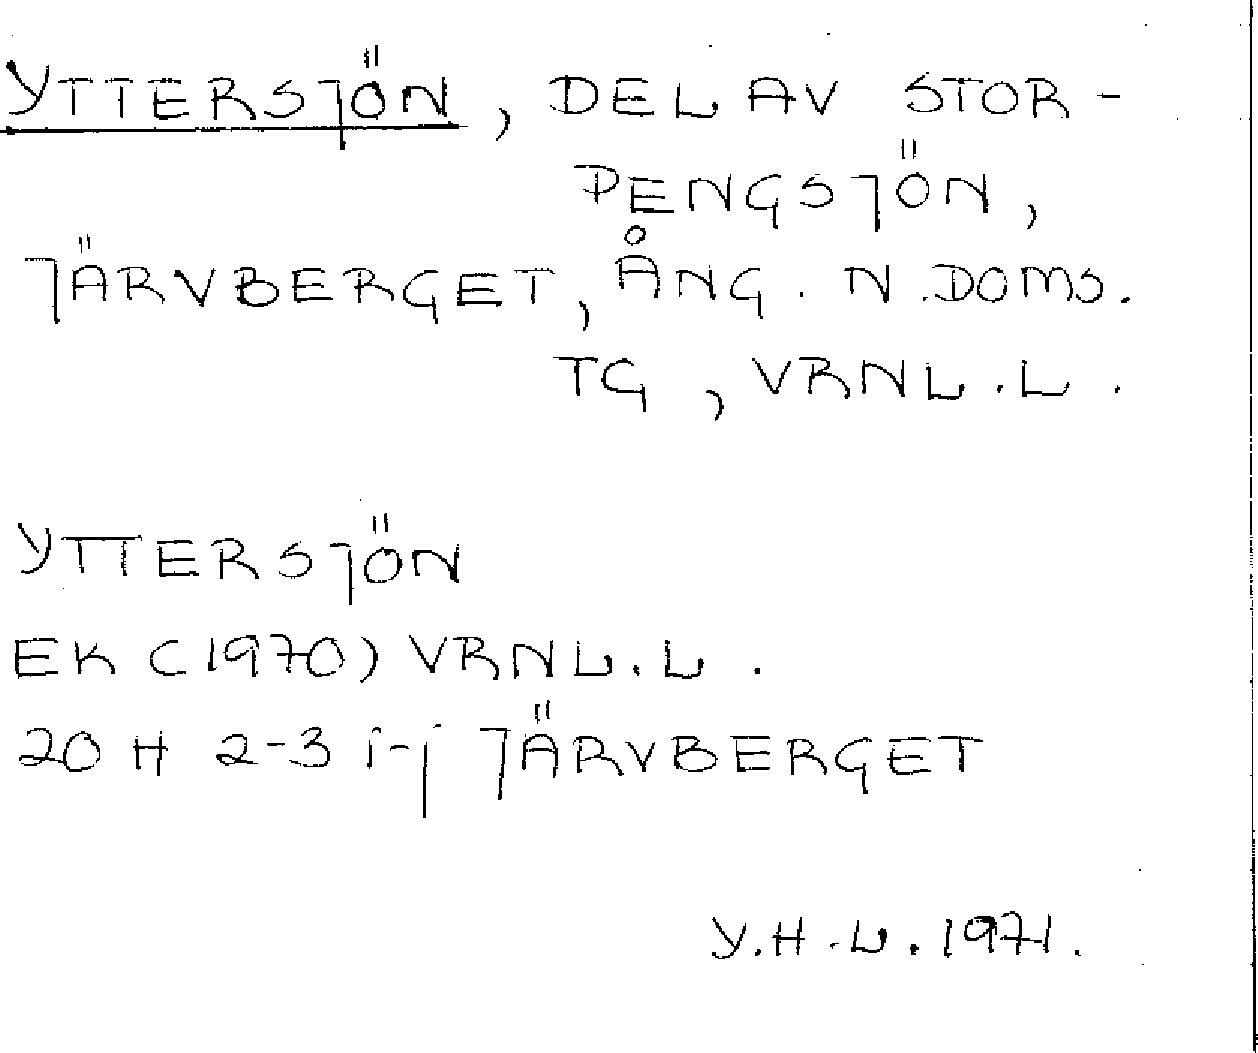 YTTERSJÖN, DEL AV STOR-
PENGSJÖN,
JÄRVBERGET, ÅNG. N. DOMS.
TG, VRNL.L.
YTTERSJÖN
EK (1970) VRNL.L.
20 H 2-3 i-j JÄRVBERGET
Y.H.L. 1971.